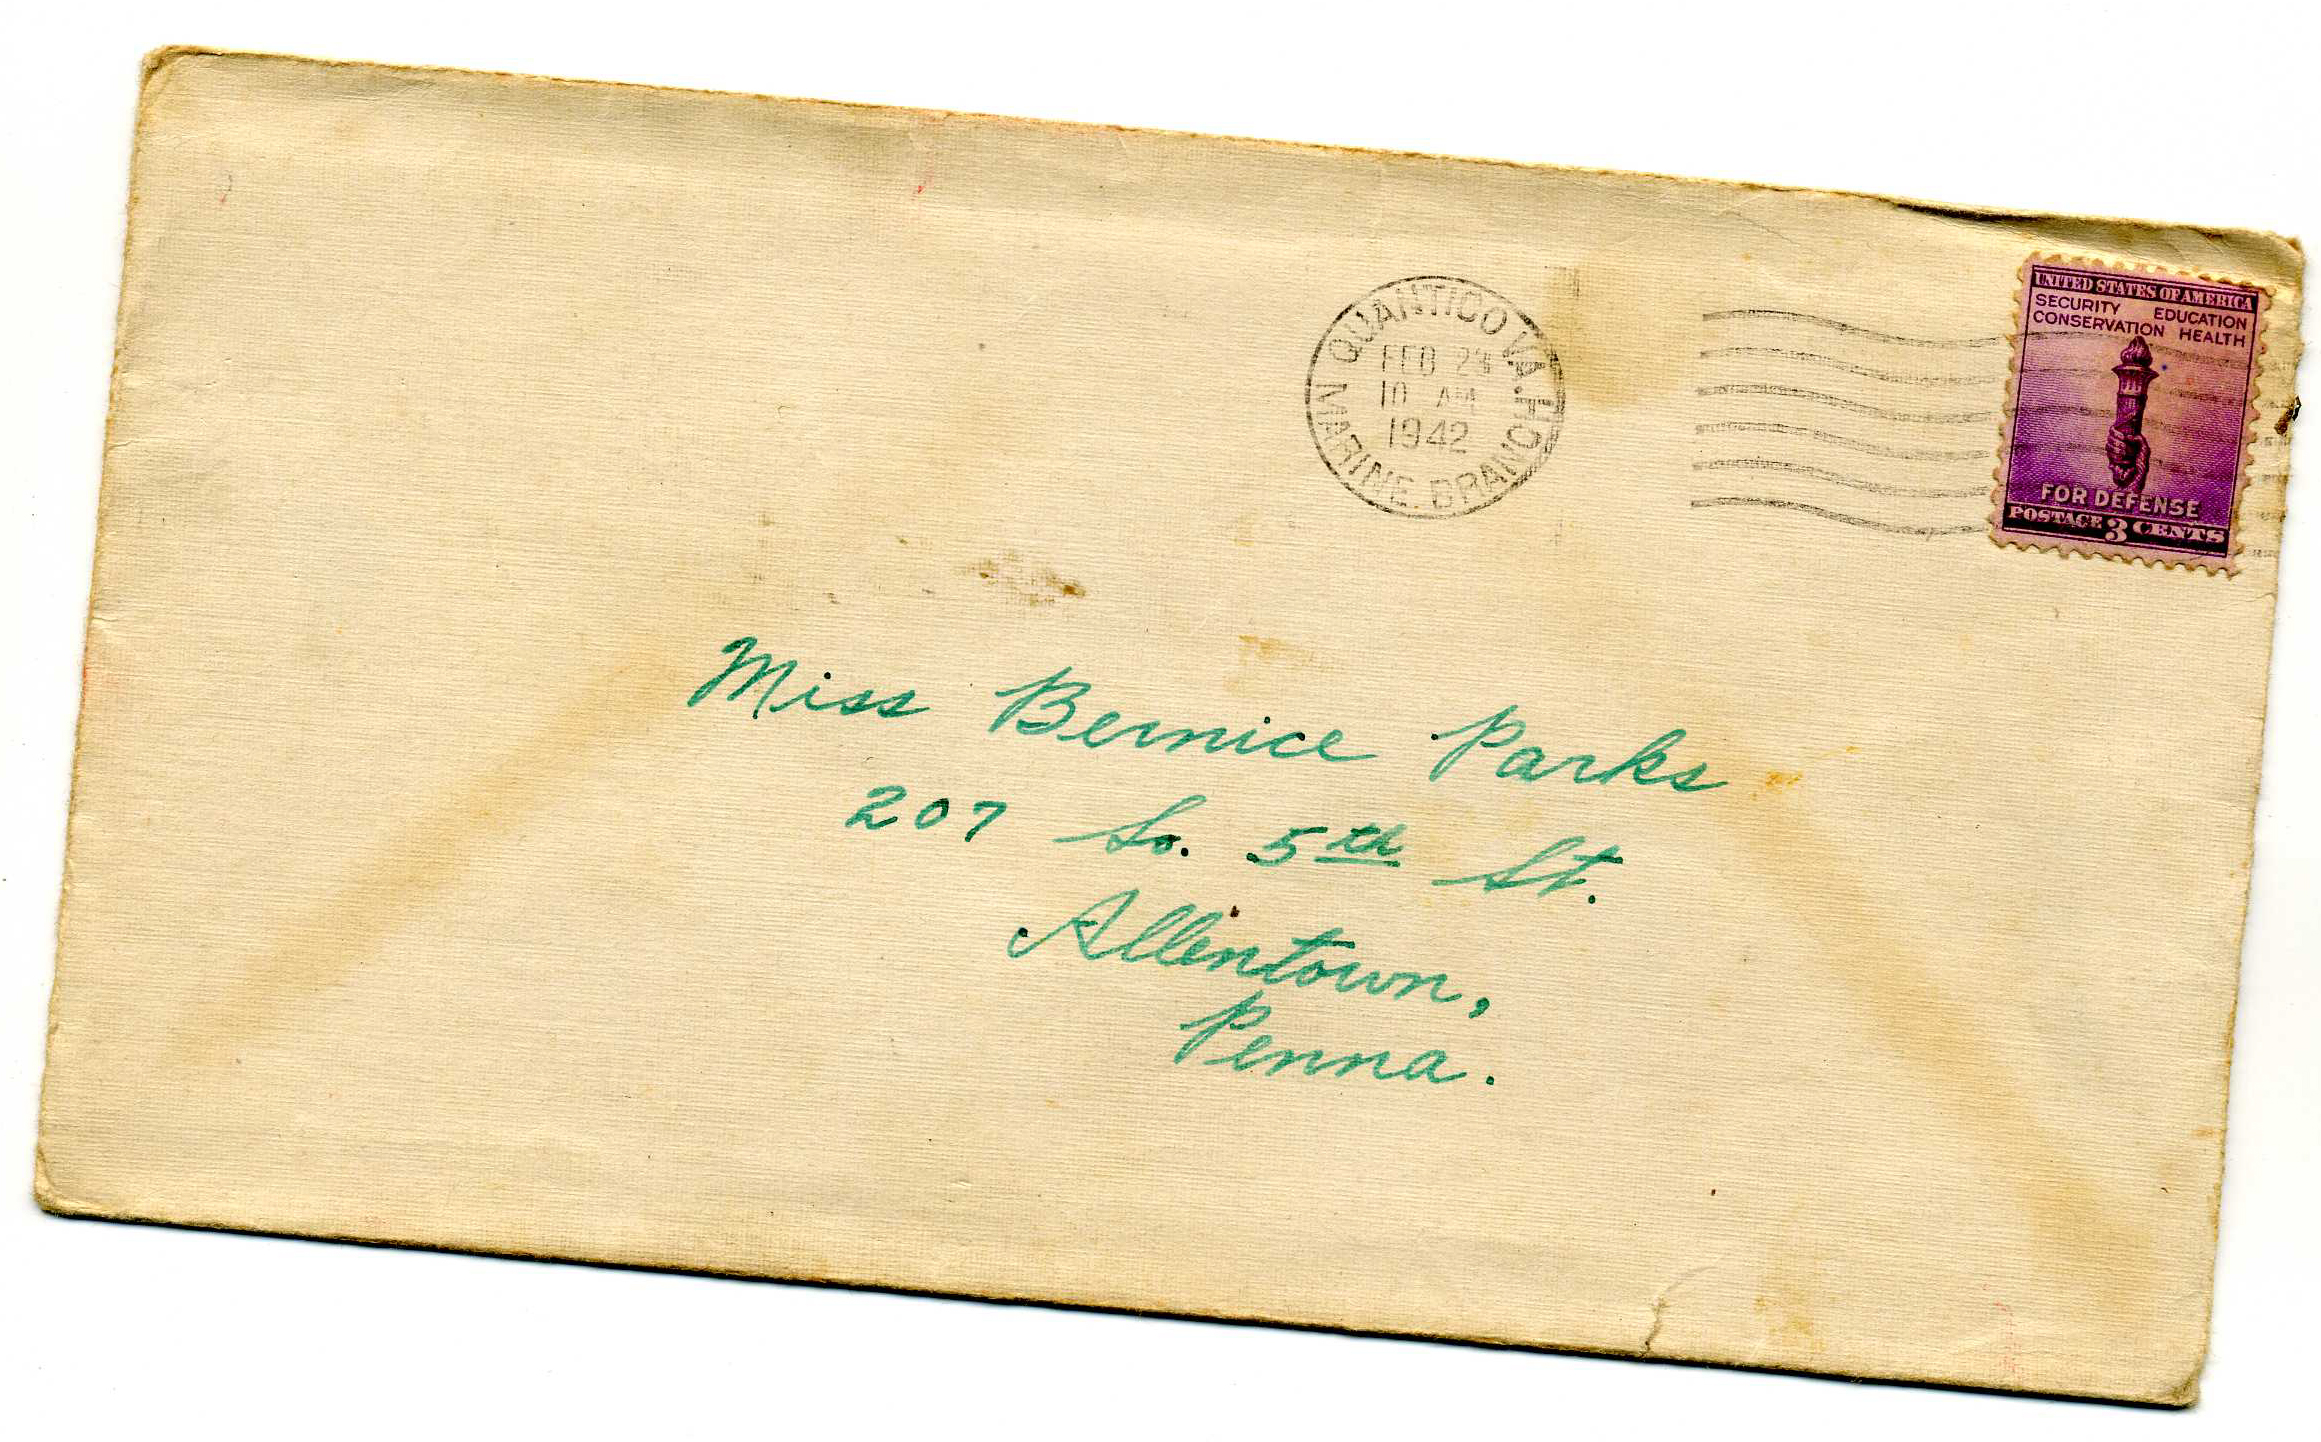 QUANTICO VA. HQ. MARINE BRANCH
FEB 23
10 AM
1942
UNITED STATES OF AMERICA
SECURITY EDUCATION
CONSERVATION HEALTH
FOR DEFENSE
POSTAGE 3 CENTS
Miss Bernice Parks
207 So. 5th St.
Allentown,
Penna.